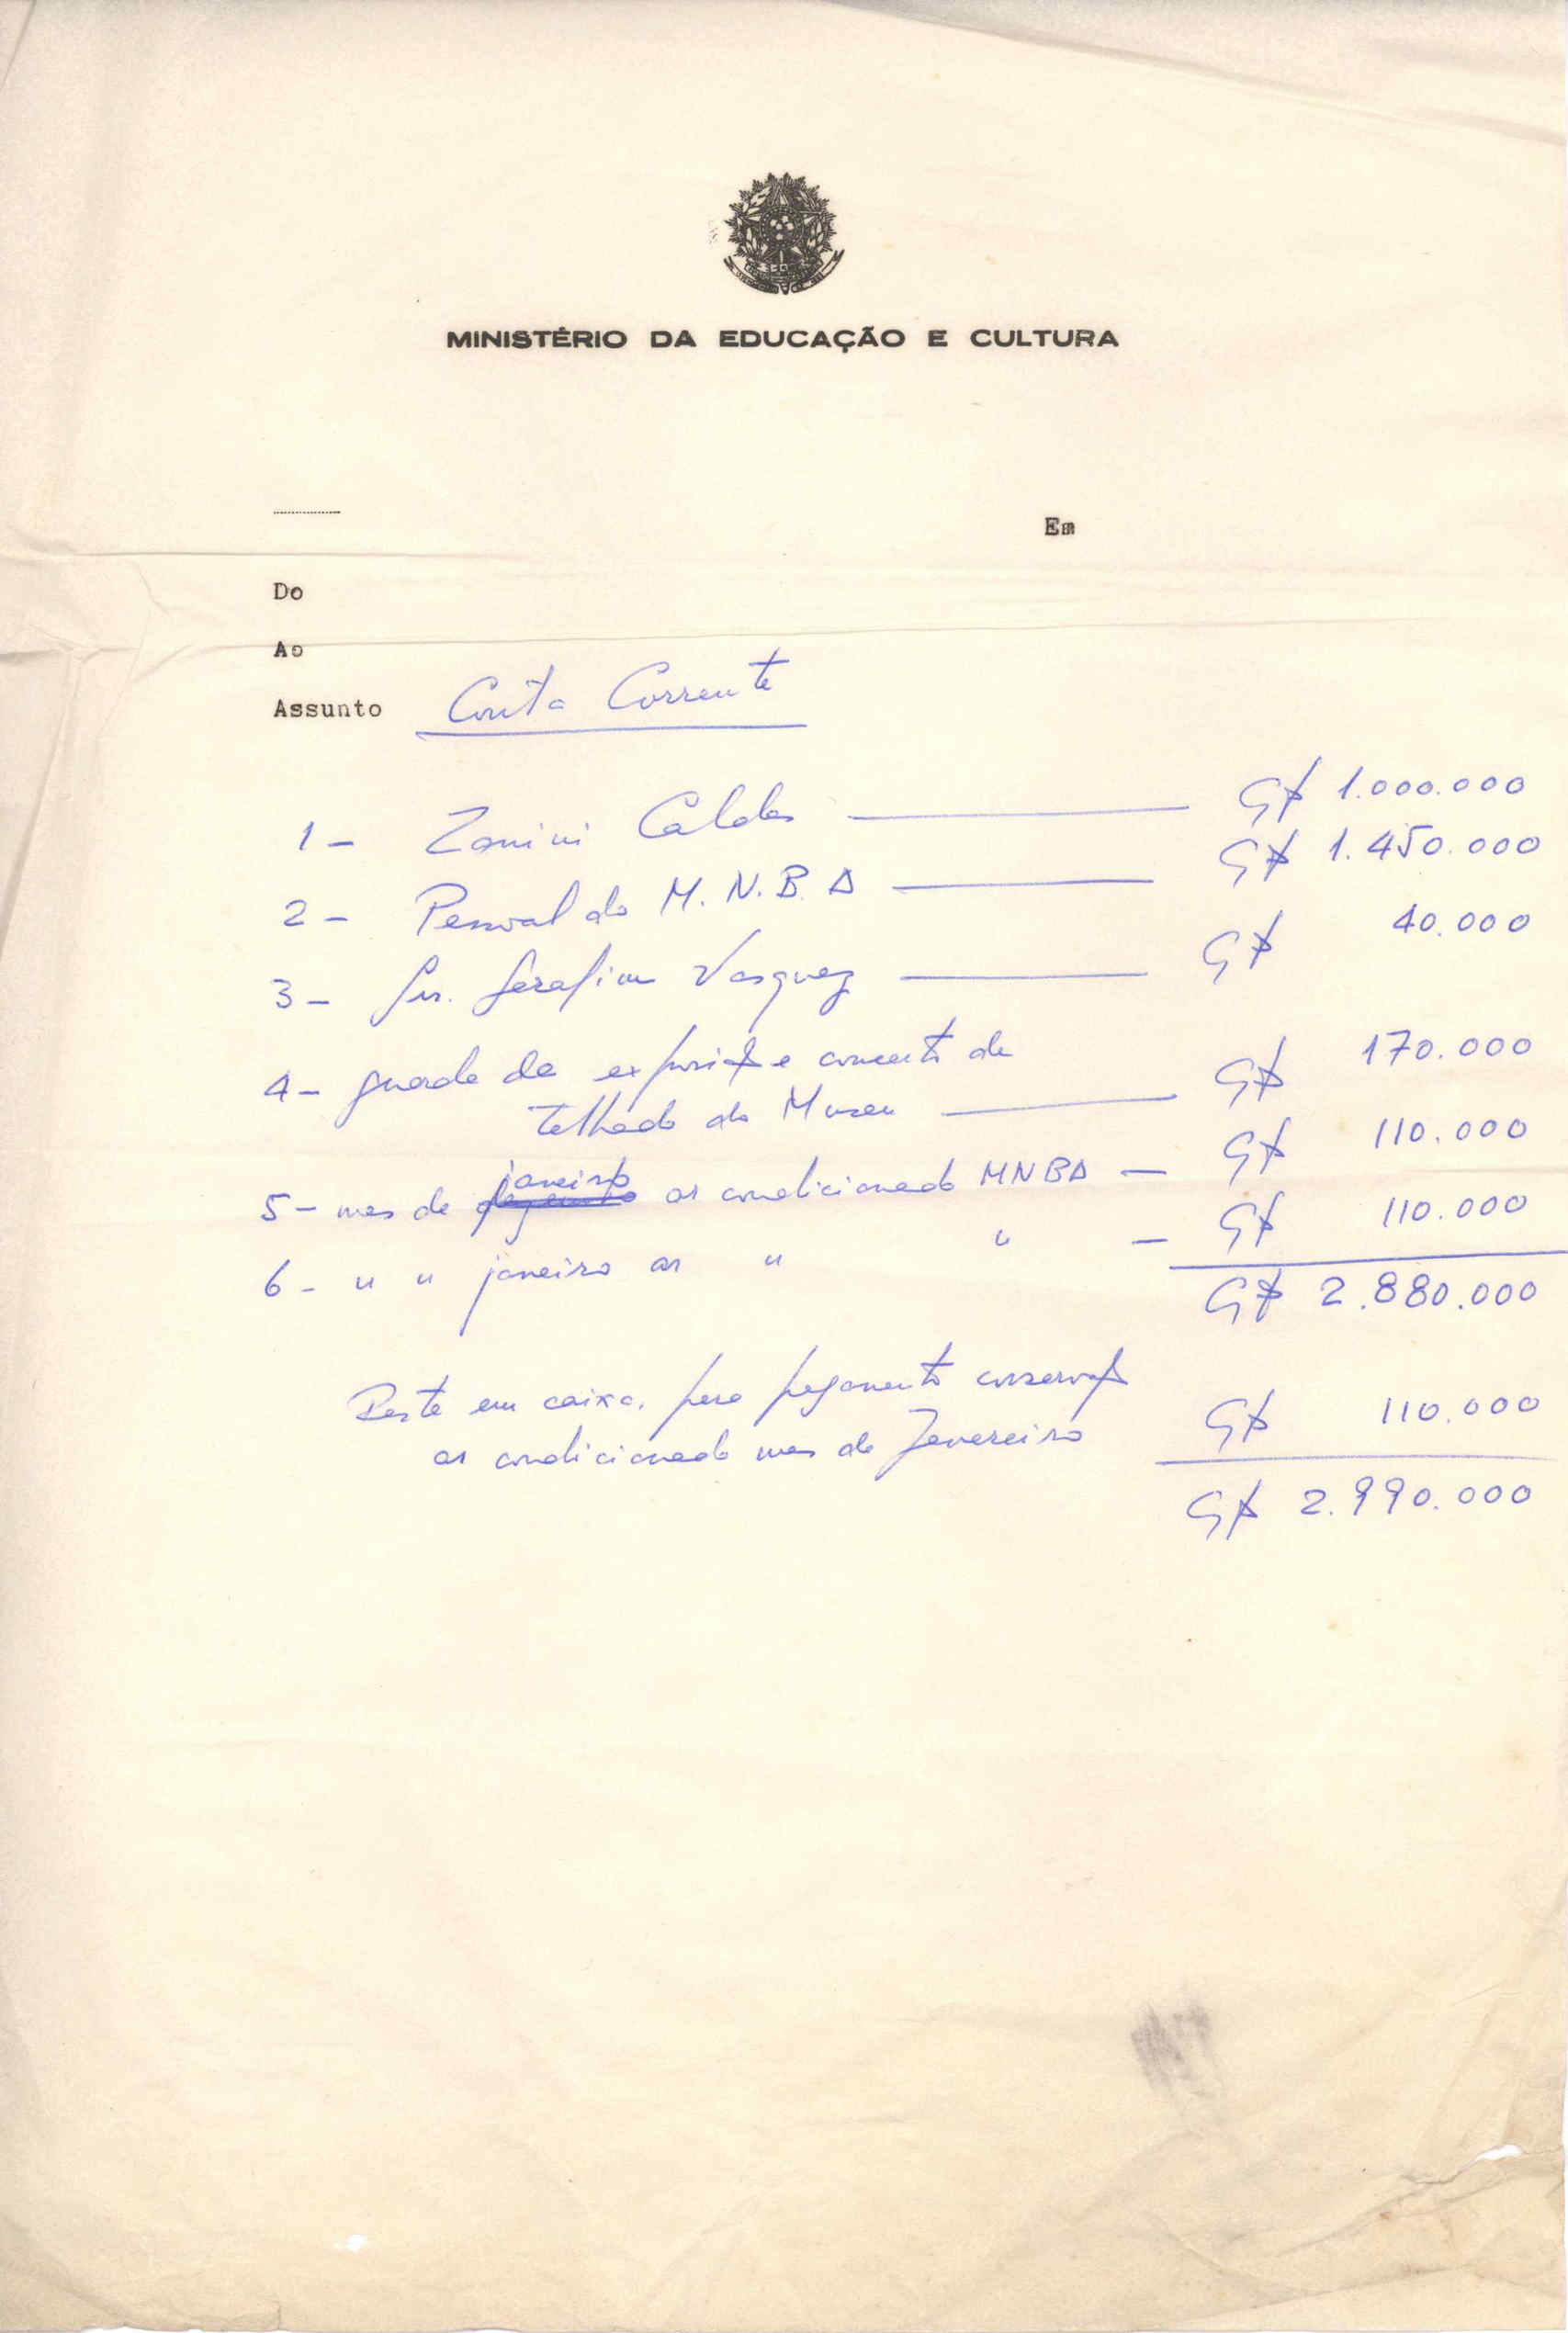 MINISTÉRIO DA EDUCAÇÃO E CULTURA
Em
Do
Ao
Assunto Conta Corrente
1 - Zanini Caldas — Cr$ 1.000.000
2 - Pessoal do M.N.B.A — Cr$ 1.450.000
3 - Snr. Serafim Vasquez — Cr$ 40.000
4 - guarda da e conserto de
telhado do Museu — Cr$ 170.000
janeiro
5 - mes de ar condicionado MNBA — Cr$ 110.000
6 - " " janeiro ar " " — Cr$ 110.000
Cr$ 2.880.000
Resta em caixa, para pagamento
ar condicionado mes de Fevereiro Cr$ 110.000
Cr$ 2.990.000